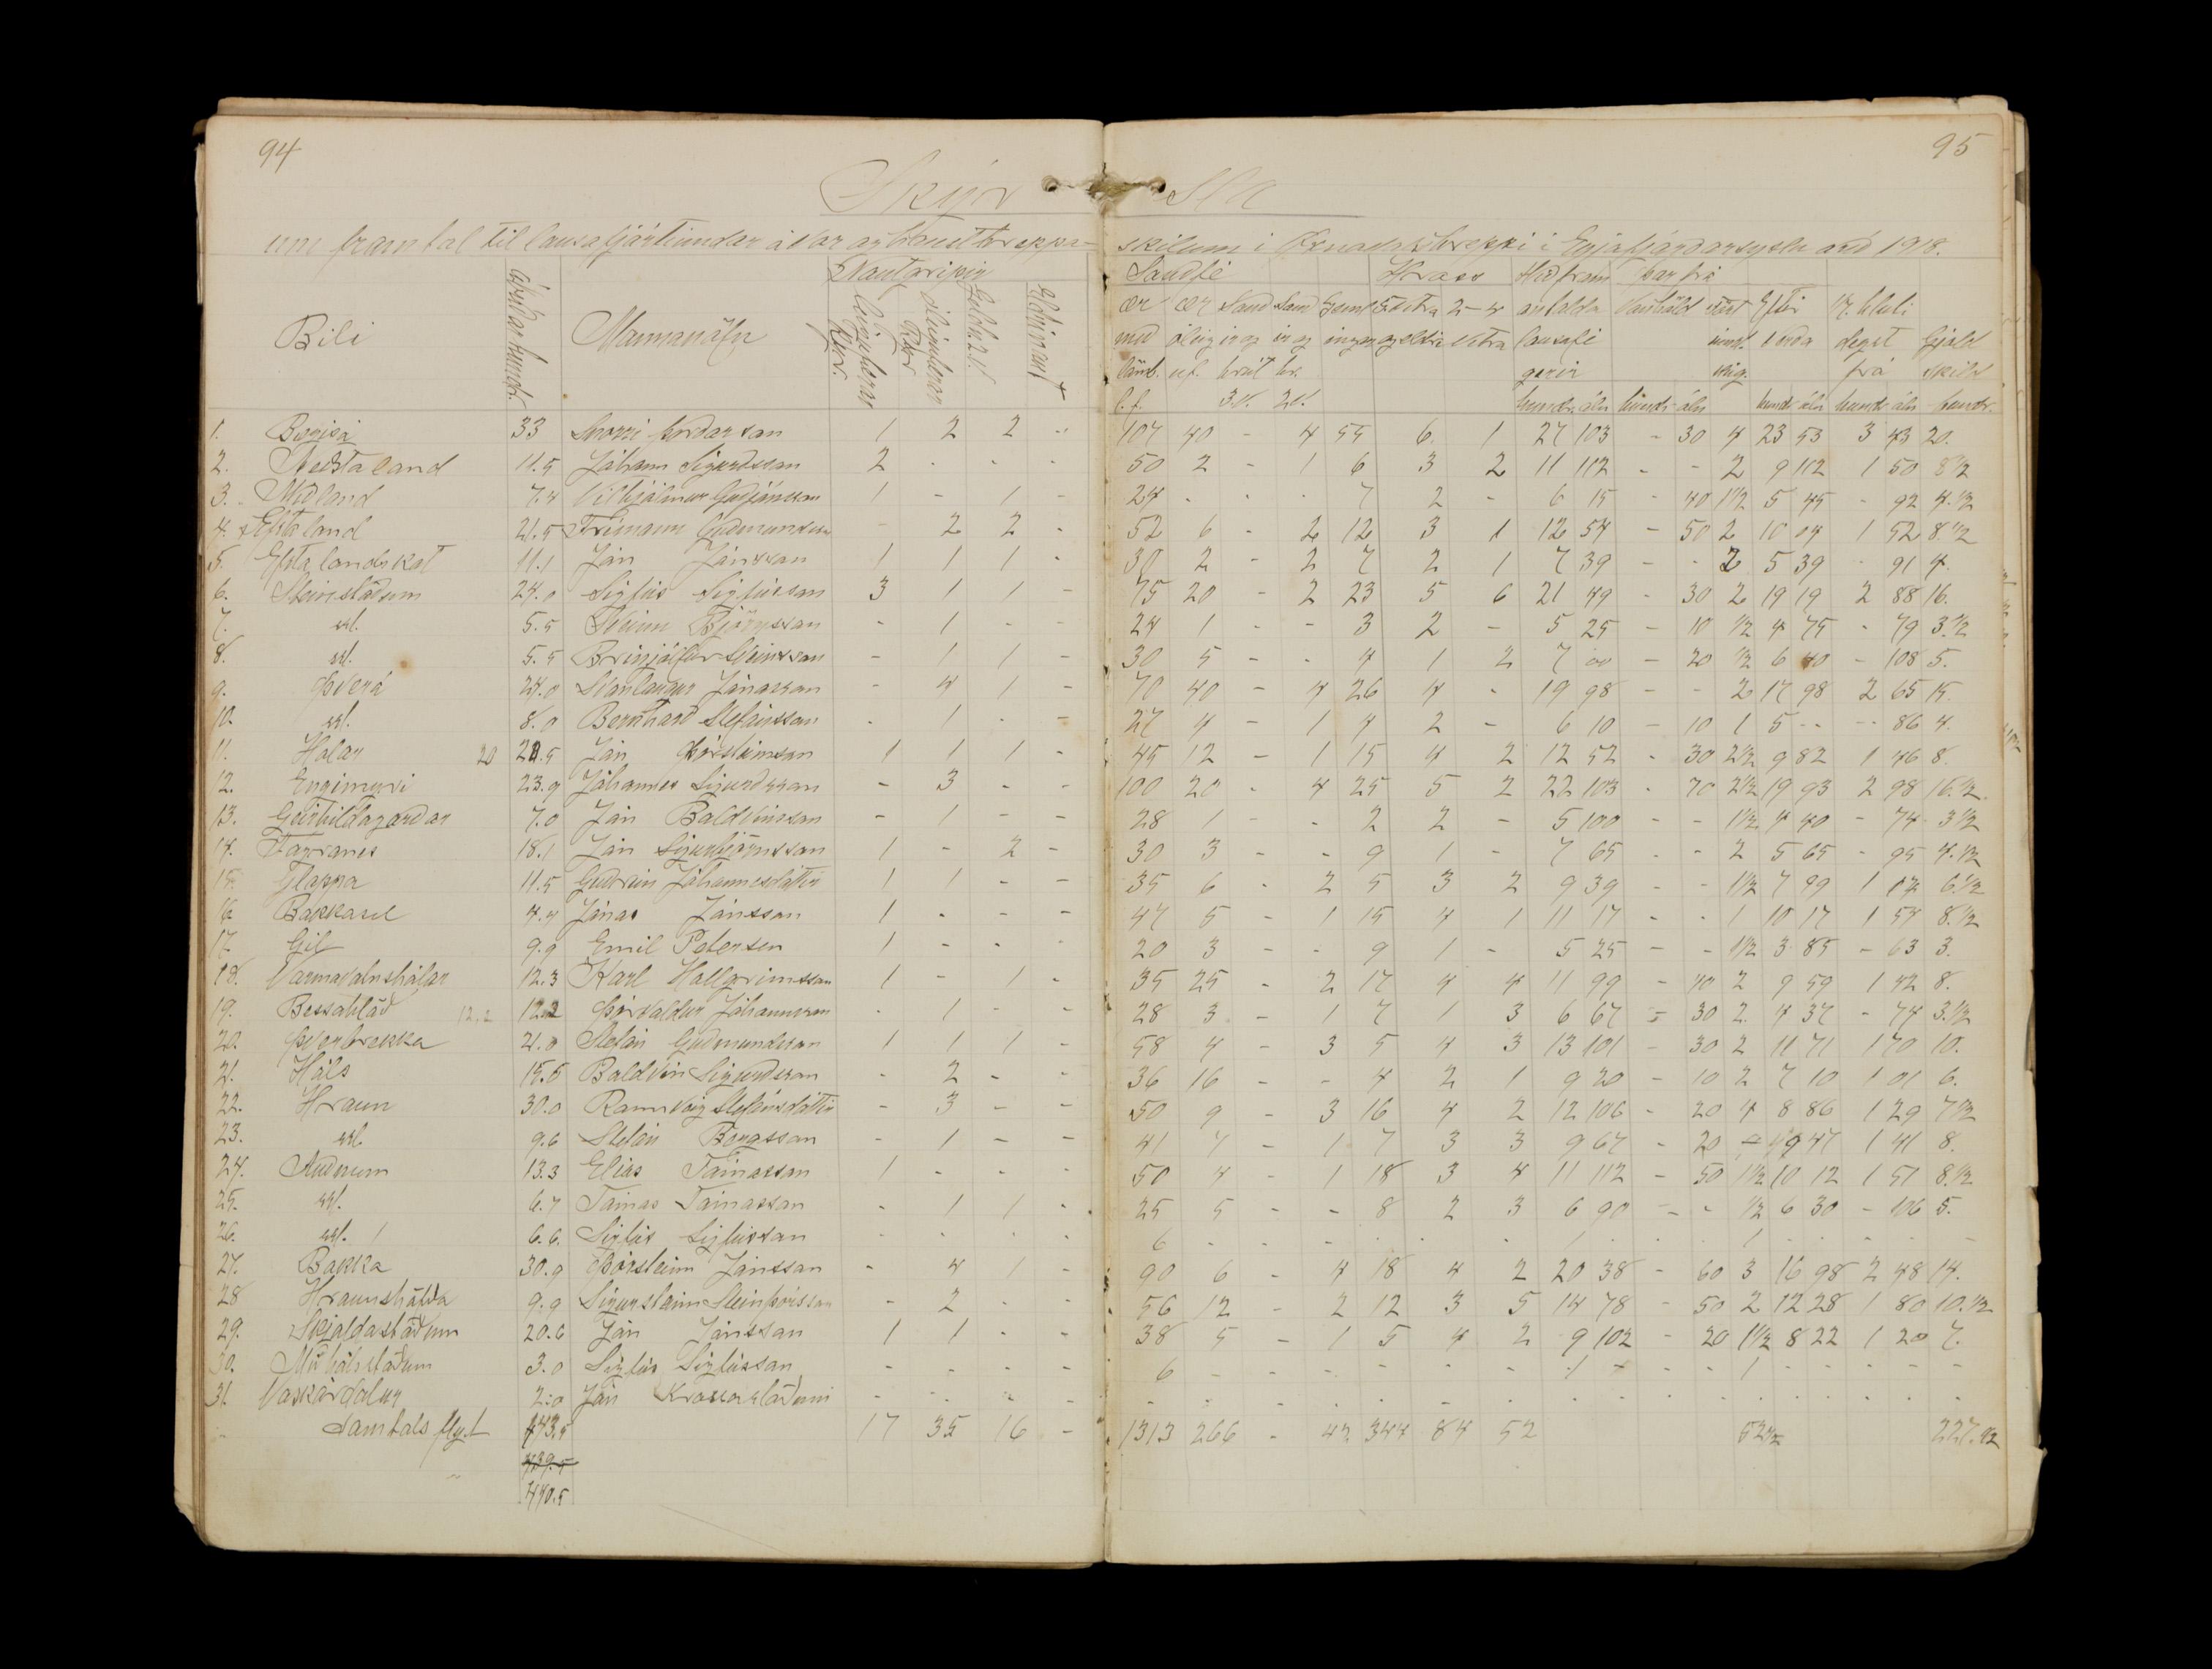 94
95
Skýrsla
um framtal til lausafjártíundar á vor og haust hreppa-
skilum í Öxnadalshreppi í Eyjafjarðarsýslu árið 1918.
Nautgripir
Sauðfé
Hross
Býli
Mannanöfn
1. Bægisá 33 Snorri Þórðarson 1 2 2 " 107 40 - 4 55 6 1 27 103 - 30 4 23 53 3 43 20.
2. Neðstaland 11.5 Jóhann Sigurðsson 2 . . . 50 2 - 1 6 3 2 11 112 - - 2 9 112 1 50 8 1/2
3. Miðland 7.4 Vilhjálmur Guðjónsson 1 - 1 - 24 . . . 7 2 - 6 15 - 40 1 1/2 5 45 - 92 4.1/2
4. Efstaland 21.5 Frímann Guðmundsson - 2 2 . 52 6 - 2 12 3 1 12 54 - 50 2 10 04 1 52 8.1/2
5. Efstalandskot 11.1 Jón Jónsson 1 1 1 . 30 2 - 2 7 2 1 7 39 - - 2 5 39 - 91 4.
6. Steinstöðum 24.0 Sigfús Sigfússon 3 1 1 - 75 20 - 2 23 5 6 21 49 - 30 2 19 19 2 88 16.
7. sst. 5.5 Steinn Björnsson - 1 - - 24 1 - - 3 2 - 5 25 - 10 1/2 4 75 - 79 3.1/2
8. sst. 5.5 Brynjólfur Sveinsson - 1 1 - 30 5 - - 4 1 2 7 00 - 20 1/2 6 40 - 108 5.
9. Þverá 24.0 Stanlaugur Jónasson - 4 1 - 70 40 - 4 26 4 - 19 98 - - 2 17 98 2 65 15.
10. sst. 8.0 Bernharð Stefánsson . 1 . - 27 4 - 1 4 2 - 6 10 - 10 1 5 -- -- 86 4.
11. Hólar 20 21.5 Jón Þorsteinsson 1 1 1 - 45 12 - 1 15 4 2 12 52 - 30 2 1/2 9 82 1 46 8.
12. Engimýri 23.9 Jóhannes Sigurðsson - 3 - - 100 20 - 4 25 5 2 22 103 - 70 2 1/2 19 93 2 98 16.1/2
13. Geirhildagarðar 7.0 Jón Baldvinsson - 1 - - 28 1 - - 2 2 - 5 100 - - 1 1/2 4 40 - 74 3 1/2
14. Fagranes 18.1 Jón Sigurbjörnsson 1 - 2 - 30 3 - - 9 1 - 7 65 - - 2 5 65 - 95 4.1/2
15. Gloppa 11.5 Guðrún Jóhannesdóttir 1 1 - - 35 6 - 2 5 3 2 9 39 - - 1 1/2 7 99 1 12 6 1/2
16. Bakkasel 4.4 Jónas Jónsson 1 . - - 47 5 - 1 15 4 1 11 17 - - 1 10 17 1 54 8.1/2
17. Gil 9.9 Emil Petersen 1 - - . 20 3 - - 9 1 - 5 25 - - 1 1/2 3 85 - 63 3.
18. Varmavatnshólar 12.3 Karl Hallgrímsson 1 - 1 . 35 25 - 2 17 4 4 11 99 - 40 2 9 59 1 42 8.
19. Bessahlöð 12.2 12.2 Þorvaldur Jóhannsson - 1 - - 28 3 - 1 7 1 3 6 67 - 30 2 4 37 - 74 3.1/2
20. Þverbrekka 21.0 Stefán Guðmundsson 1 1 1 - 58 4 - 3 5 4 3 13 101 - 30 2 11 71 1 70 10.
21. Háls 15.6 Baldvin Sigurðsson - 2 - - 36 16 - - 4 2 1 9 20 - 10 2 7 10 1 01 6.
22. Hraun 30.0 Rannveig Stefánsdóttir - 3 - - 50 9 - 3 16 4 2 12 106 - 20 4 8 86 1 29 7 1/2
23. sst. 9.6 Stefán Bergsson - 1 - - 41 7 - 1 7 3 3 9 67 - 20 9 47 1 41 8.
24. Auðnum 13.3 Elías Tómasson 1 . - . 50 4 - 1 18 3 4 11 112 - 50 1 1/2 10 12 1 51 8.1/2
25. sst. 6.7 Tómas Tómasson - 1 1 . 25 5 - - 8 2 3 6 90 - - 1/2 6 30 - 106 5.
26. sst. 6.6. Sigfús Sigfússon . . . . 6 - - - . . . 1 . . . 1 . . . . -
27. Bakka 30.9 Þorsteinn Jónsson - 4 1 - 90 6 - 4 18 4 2 20 38 - 60 3 16 98 2 48 14.
28 Hraunshöfða 9.9 Sigursteinn Steinþórsson - 2 - - 56 12 - 2 12 3 5 14 78 - 50 2 12 28 1 80 10.1/2
29. Skjaldastöðum 20.6 Jón Jónsson 1 1 - - 38 5 - 1 5 4 2 9 102 - 20 1 1/2 8 22 1 20 7.
30. Miðhálsstöðum 3.0 Sigfús Sigfússon - - - - 6 - - - - - - 1 - - - 1 - - - - -
31. Vaskárdalur 2.0 Jón Krossastöðum - . . -
Samtals flyt 443.5 17 35 16 - 1313 266 - 43 344 84 52 52 1/2 227.1/2
439.5
440.5